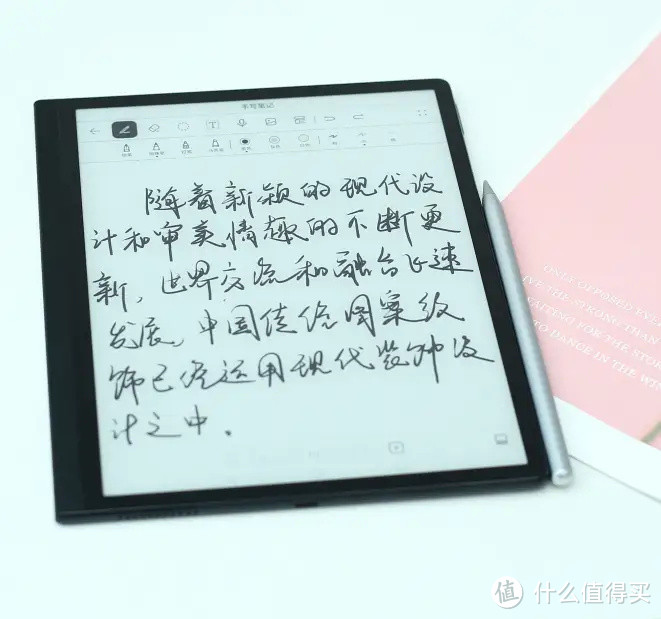 手写笔记
随着新颖的现代设
计和审美情趣的不断更
新，世界交流和融合飞速
发展，中国传统图案纹
饰已经运用现代装饰设
计之中.
ONLY OPPOSED EVE
THE STRONG THAN
WAITING FOR THE STOR
TO DANCE IN THE WI
值 什么值得买